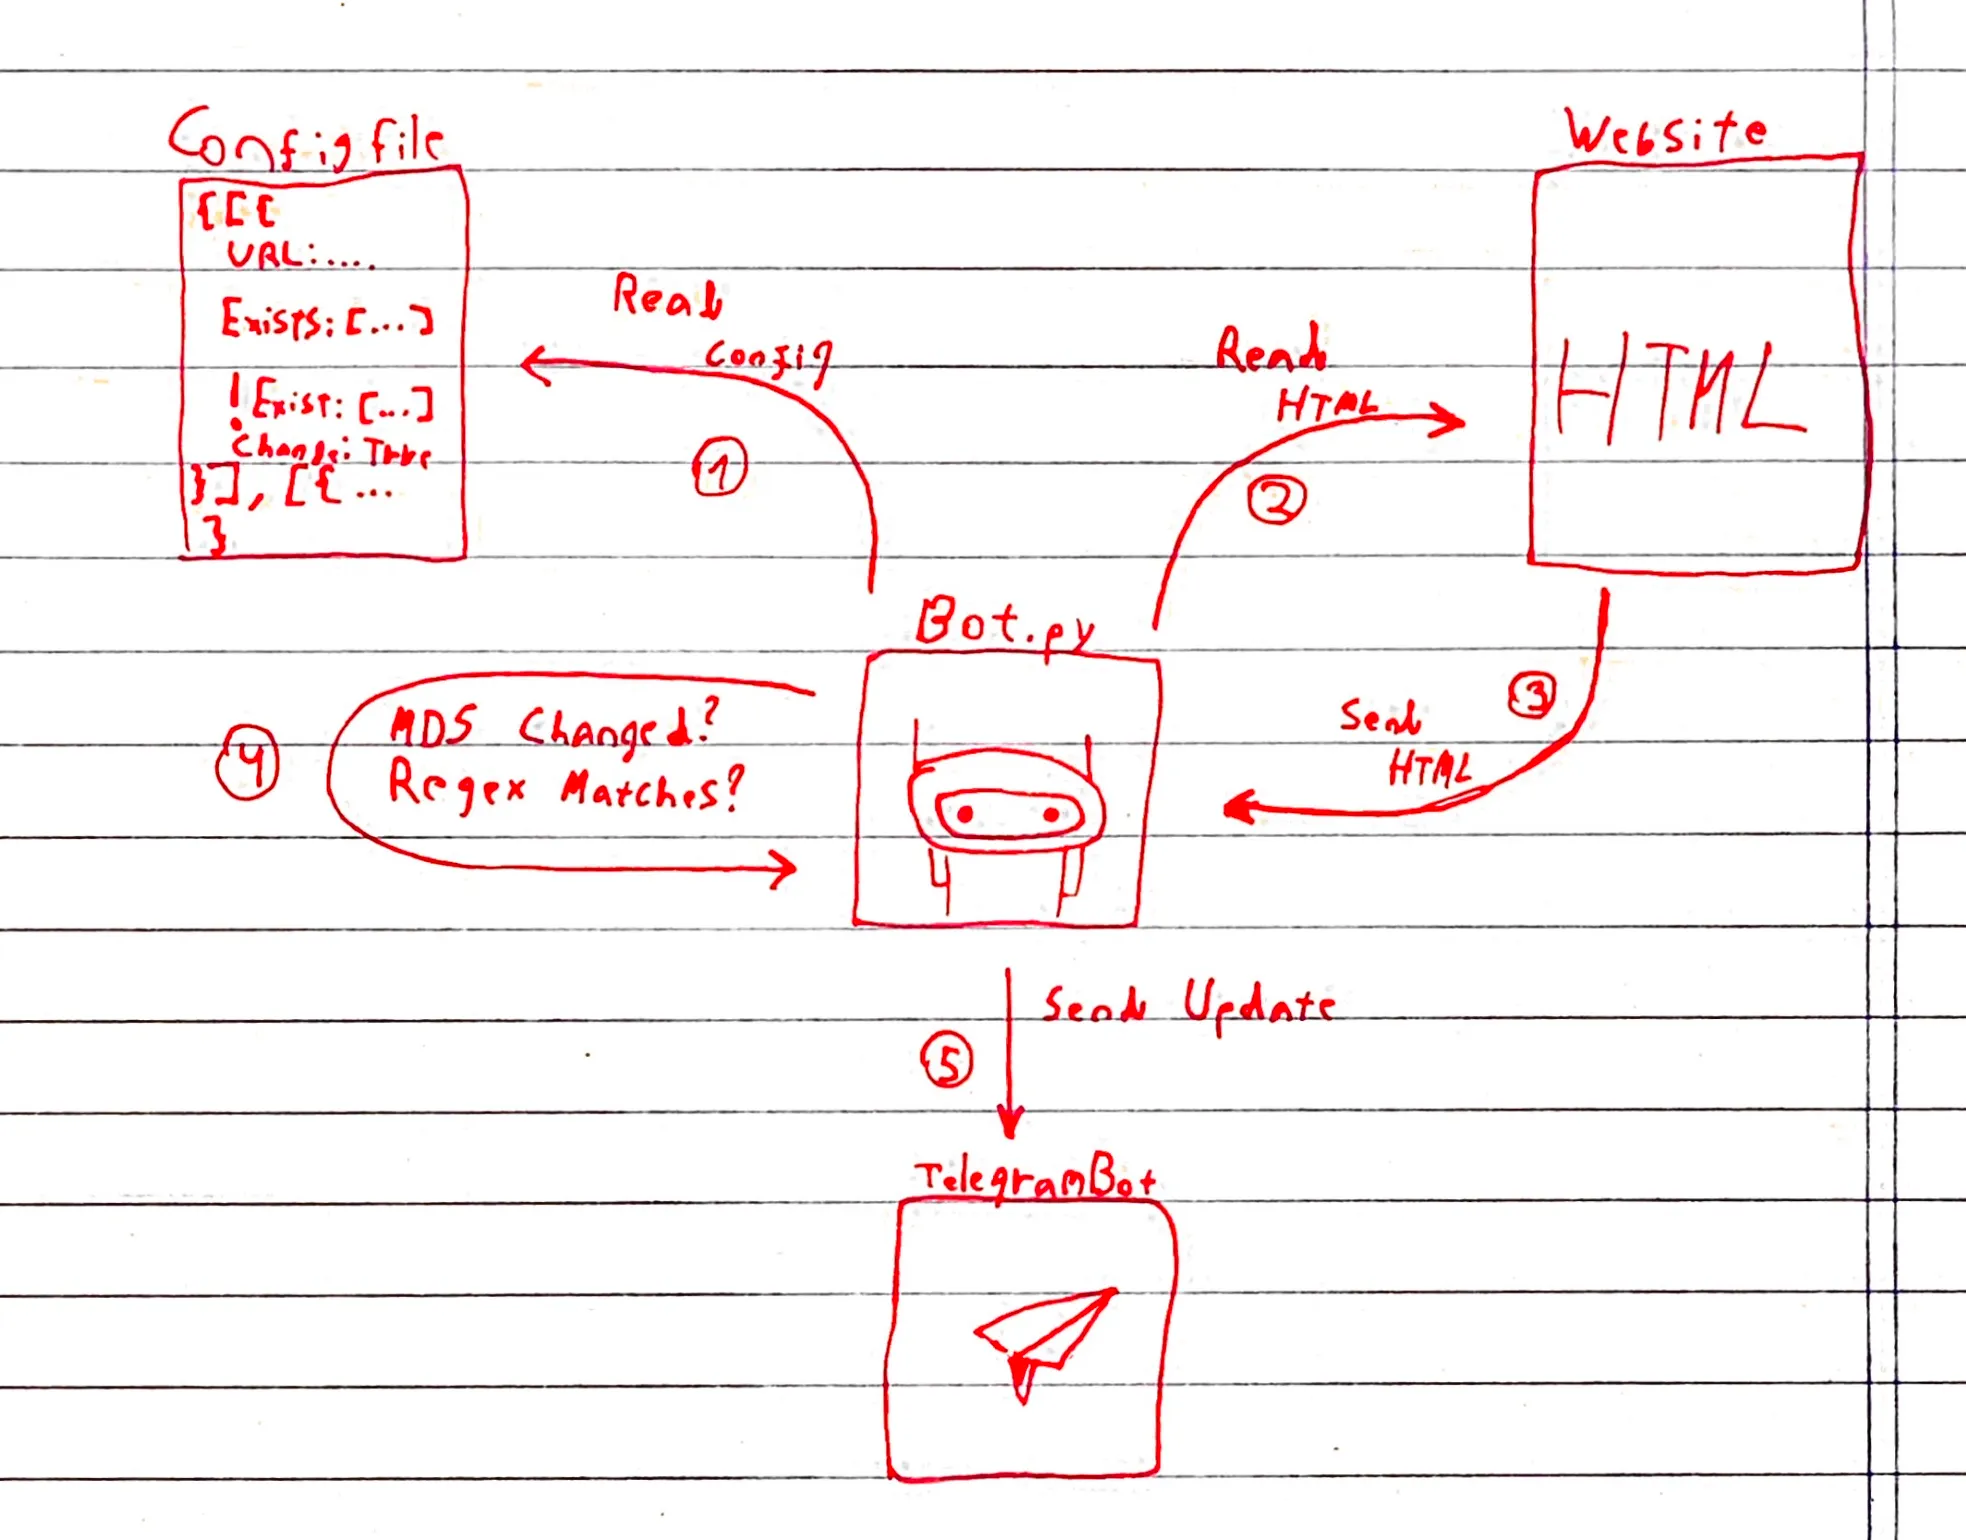 Configfile
{[{
URL:....
Exists: [...]
!Exist: [...]
Change: True
}], [{ ...
}
Read
Config
1
Website
HTML
Read
HTML
2
Bot.py
3
Send
HTML
4
MD5 Changed?
Regex Matches?
5
Send Update
TelegramBot